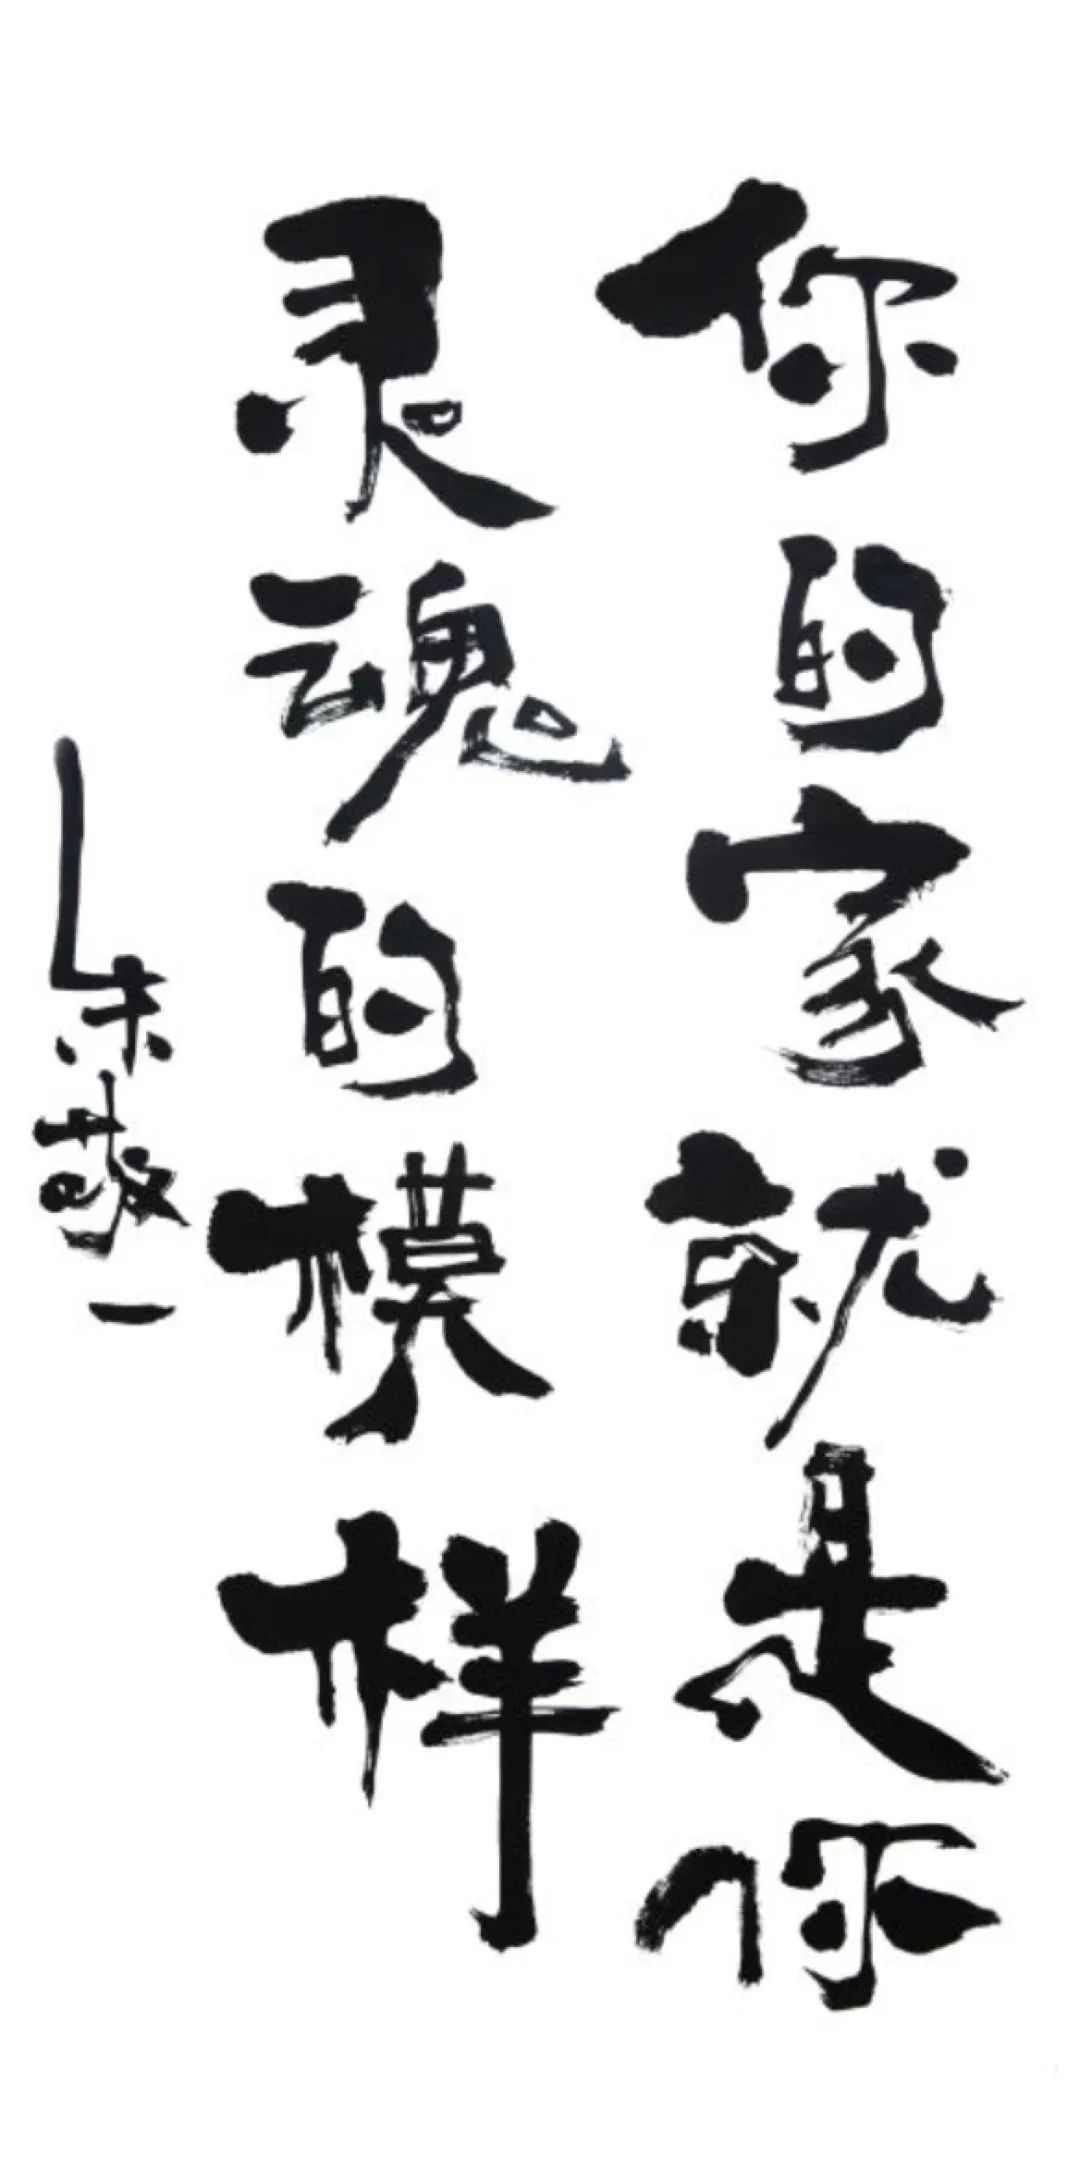 你的家就是你
灵魂的模样
朱敬一